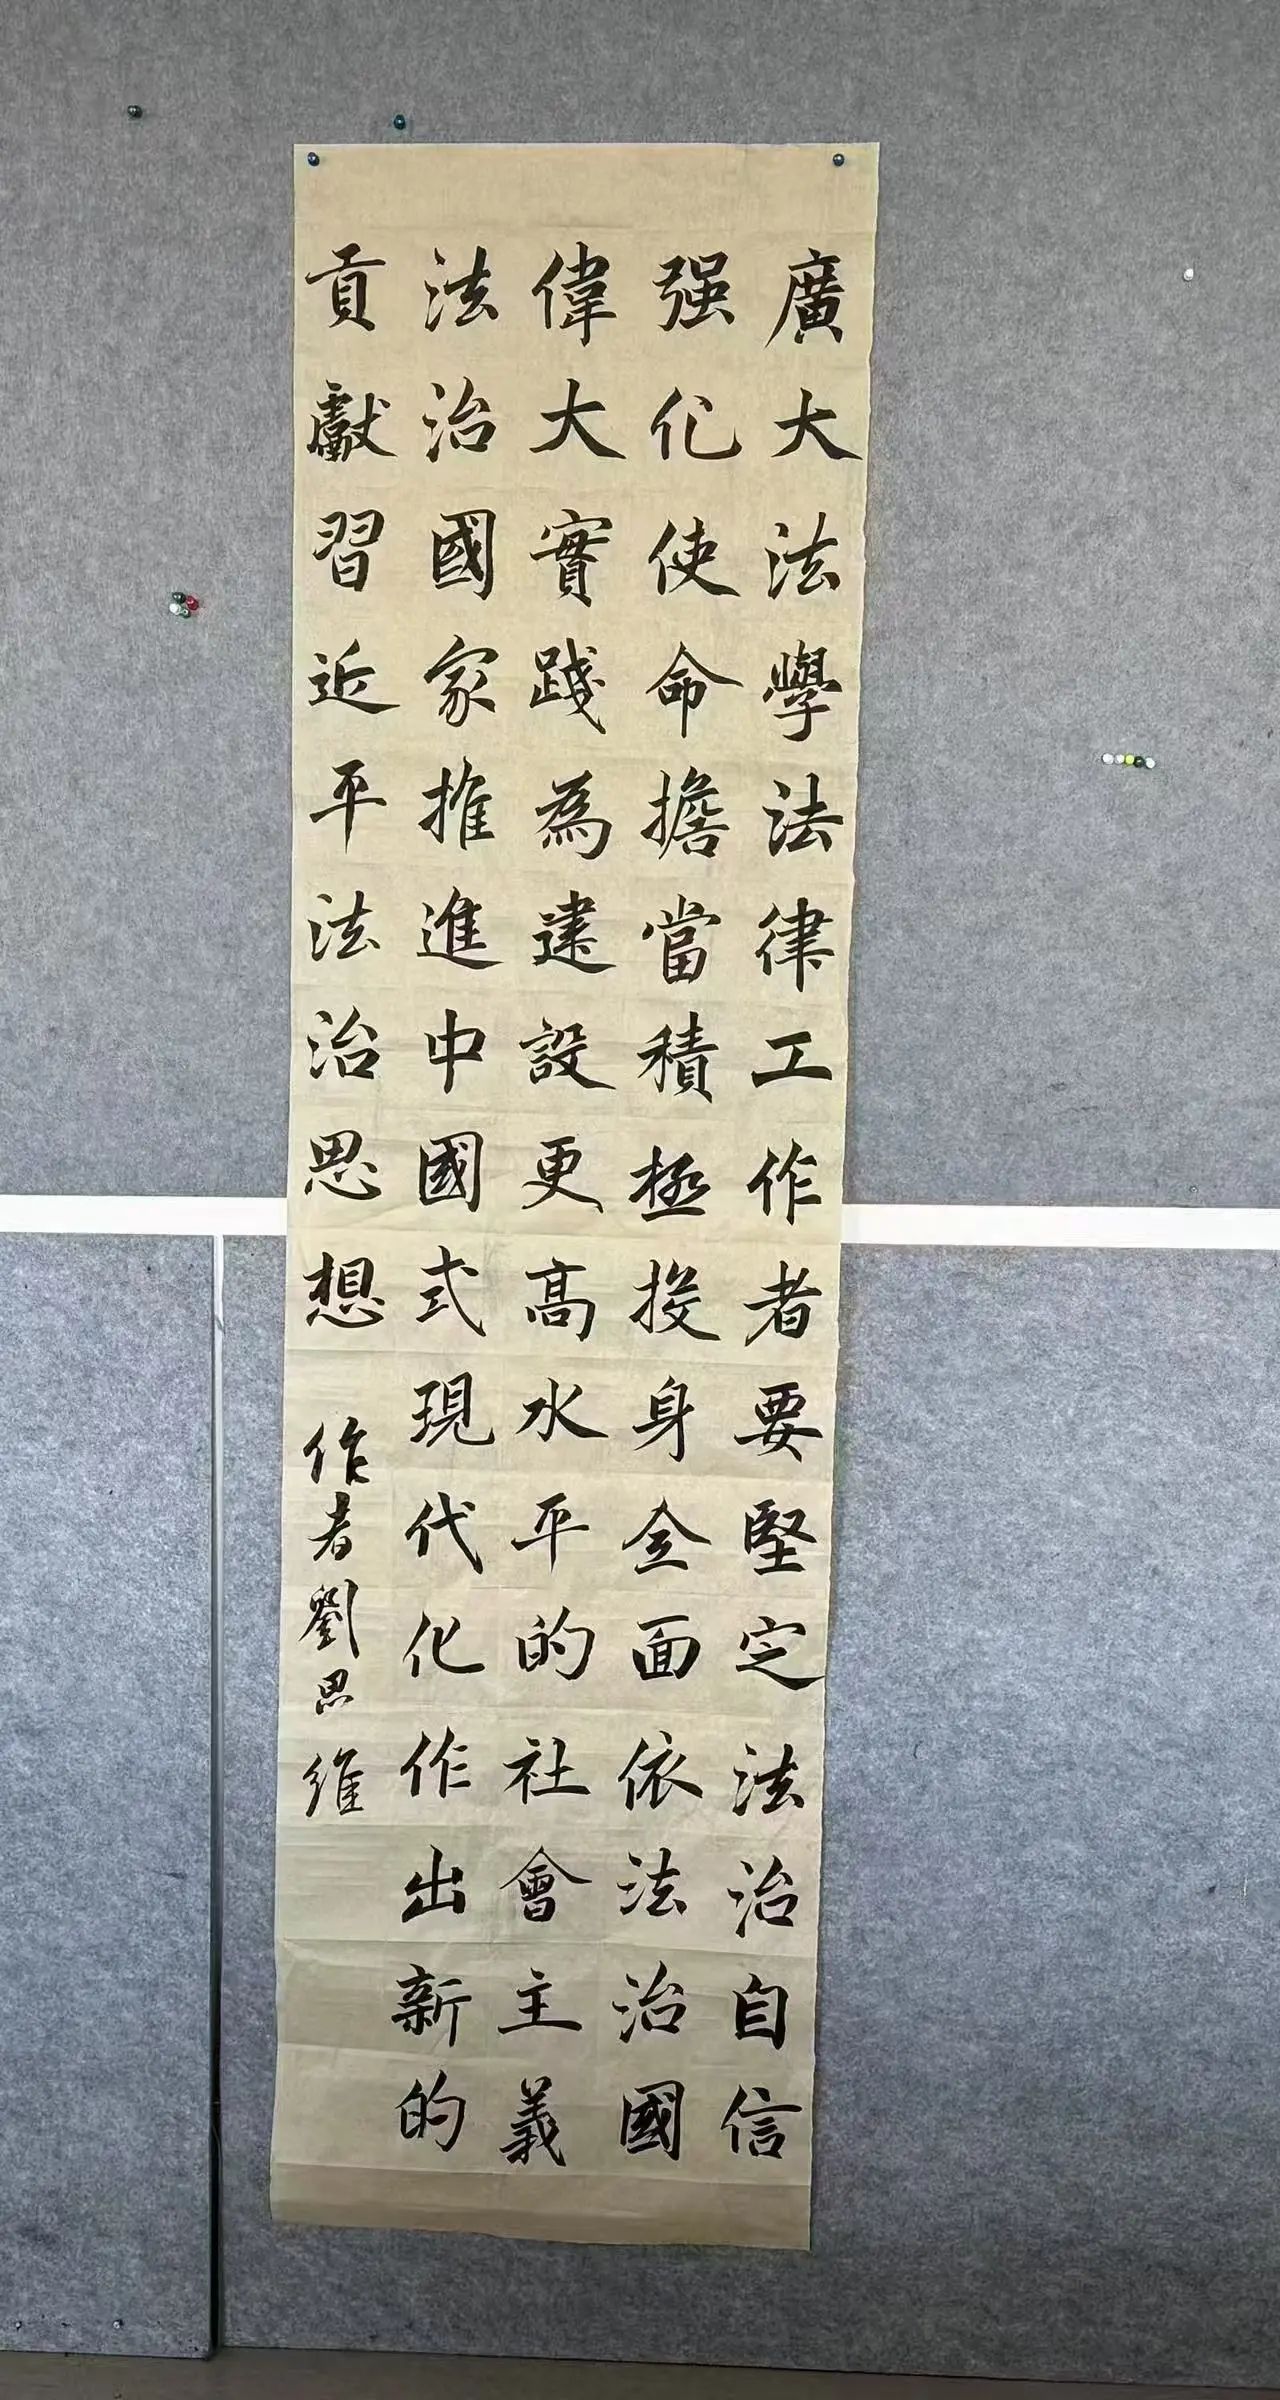 廣大法學法律工作者要堅定法治自信
强化使命擔當積極投身全面依法治國
偉大實踐為建設更高水平的社會主義
法治國家推進中國式現代化作出新的
貢獻習近平法治思想
作者劉思維